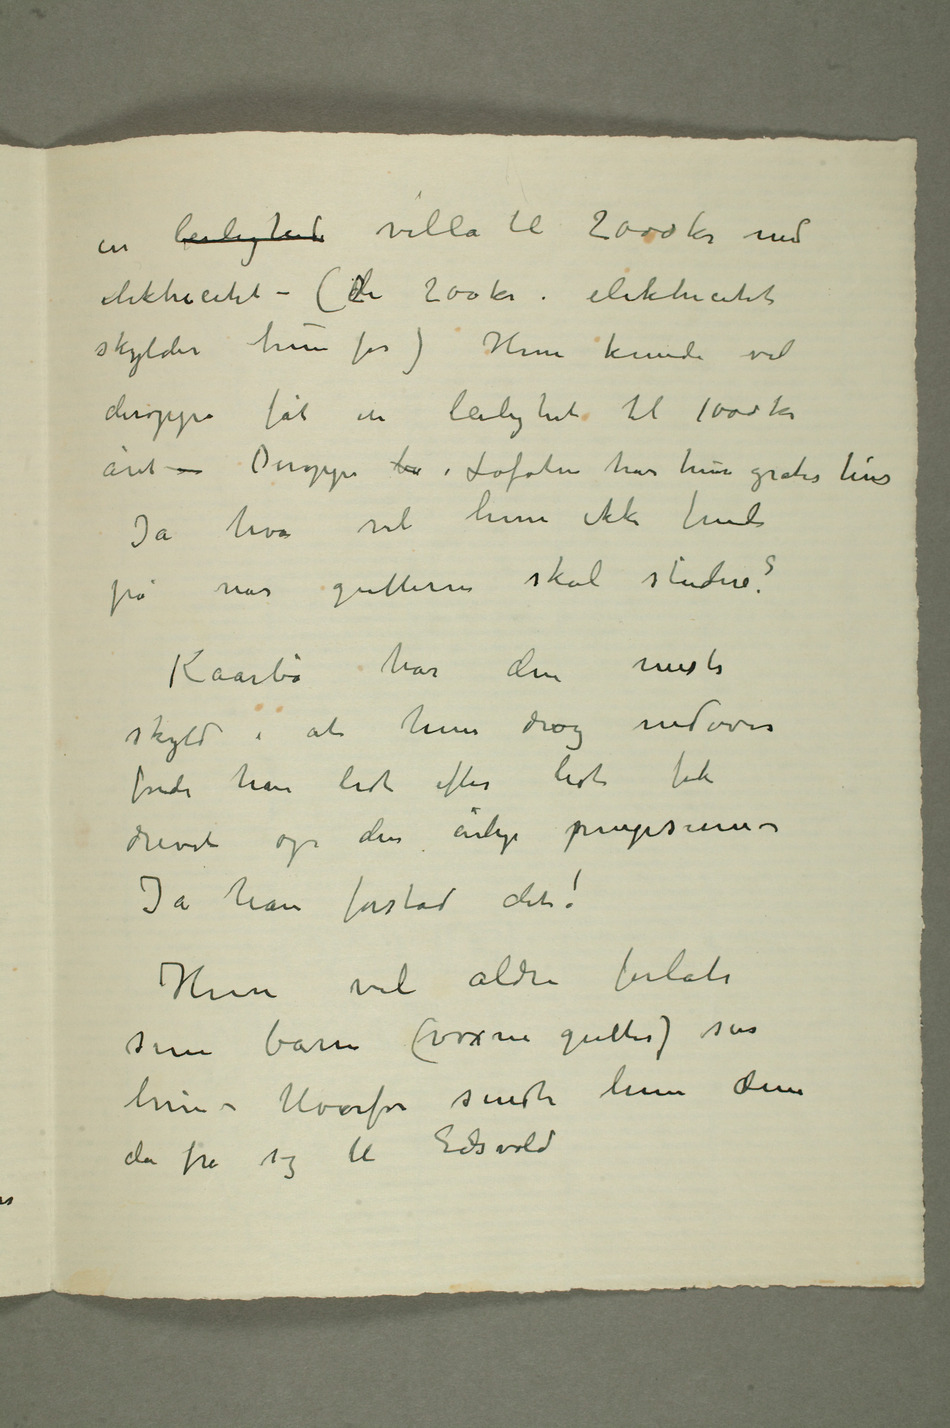 en leilighed villa til 2000 kr med
elektricitet – (De 200 kr i elektricitet
skylder hun for) Hun kunde vel
deroppe fåt en leilighet til 1000 kr
året — Deroppe i Lofoten har hun gratis hus
Ja hva vil hun ikke finde
på når gutterne skal studere?
Kaarbø har den meste
skyld i at hun drog nedover
fordi han lidt efter lidt fik
drevet op den årlige pengesum –
Ja han forstod det!
Hun vil aldri forlate
sine barn (voxne gutter) sier
hun – Hvorfor sendte hun dem
da fra sig til Eidsvold